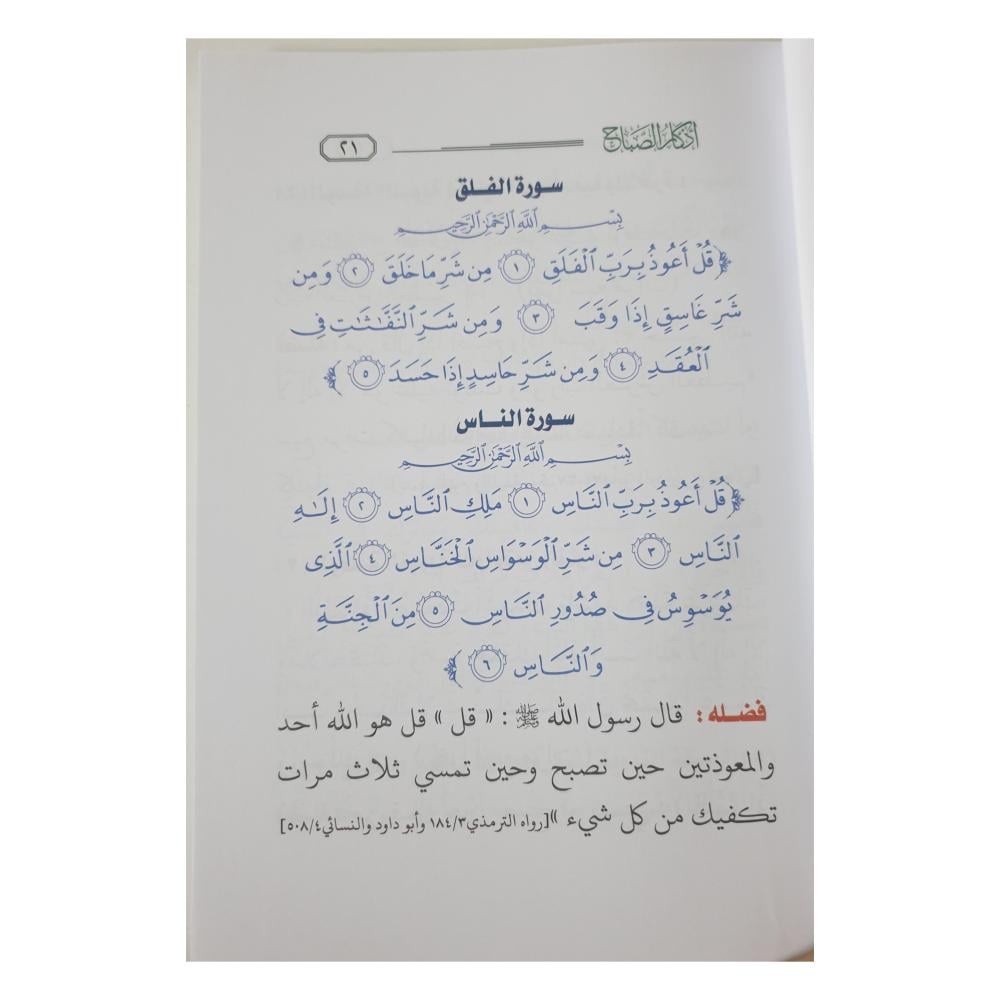 أذكار الصباح ٢١
سورة الفلق
بِسْمِ ٱللَّهِ ٱلرَّحْمَٰنِ ٱلرَّحِيمِ
﴿ قُلْ أَعُوذُ بِرَبِّ ٱلْفَلَقِ ١ مِن شَرِّ مَا خَلَقَ ٢ وَمِن
شَرِّ غَاسِقٍ إِذَا وَقَبَ ٣ وَمِن شَرِّ ٱلنَّفَّٰثَٰتِ فِى
ٱلْعُقَدِ ٤ وَمِن شَرِّ حَاسِدٍ إِذَا حَسَدَ ٥ ﴾
سورة الناس
بِسْمِ ٱللَّهِ ٱلرَّحْمَٰنِ ٱلرَّحِيمِ
﴿ قُلْ أَعُوذُ بِرَبِّ ٱلنَّاسِ ١ مَلِكِ ٱلنَّاسِ ٢ إِلَٰهِ
ٱلنَّاسِ ٣ مِن شَرِّ ٱلْوَسْوَاسِ ٱلْخَنَّاسِ ٤ ٱلَّذِى
يُوَسْوِسُ فِى صُدُورِ ٱلنَّاسِ ٥ مِنَ ٱلْجِنَّةِ
وَٱلنَّاسِ ٦ ﴾
فضله : قال رسول الله ﷺ : « قل » قل هو الله أحد
والمعوذتين حين تصبح وحين تمسي ثلاث مرات
تكفيك من كل شيء »[رواه الترمذي ١٨٤/٣ وأبو داود والنسائي ٥٠٨/٤]